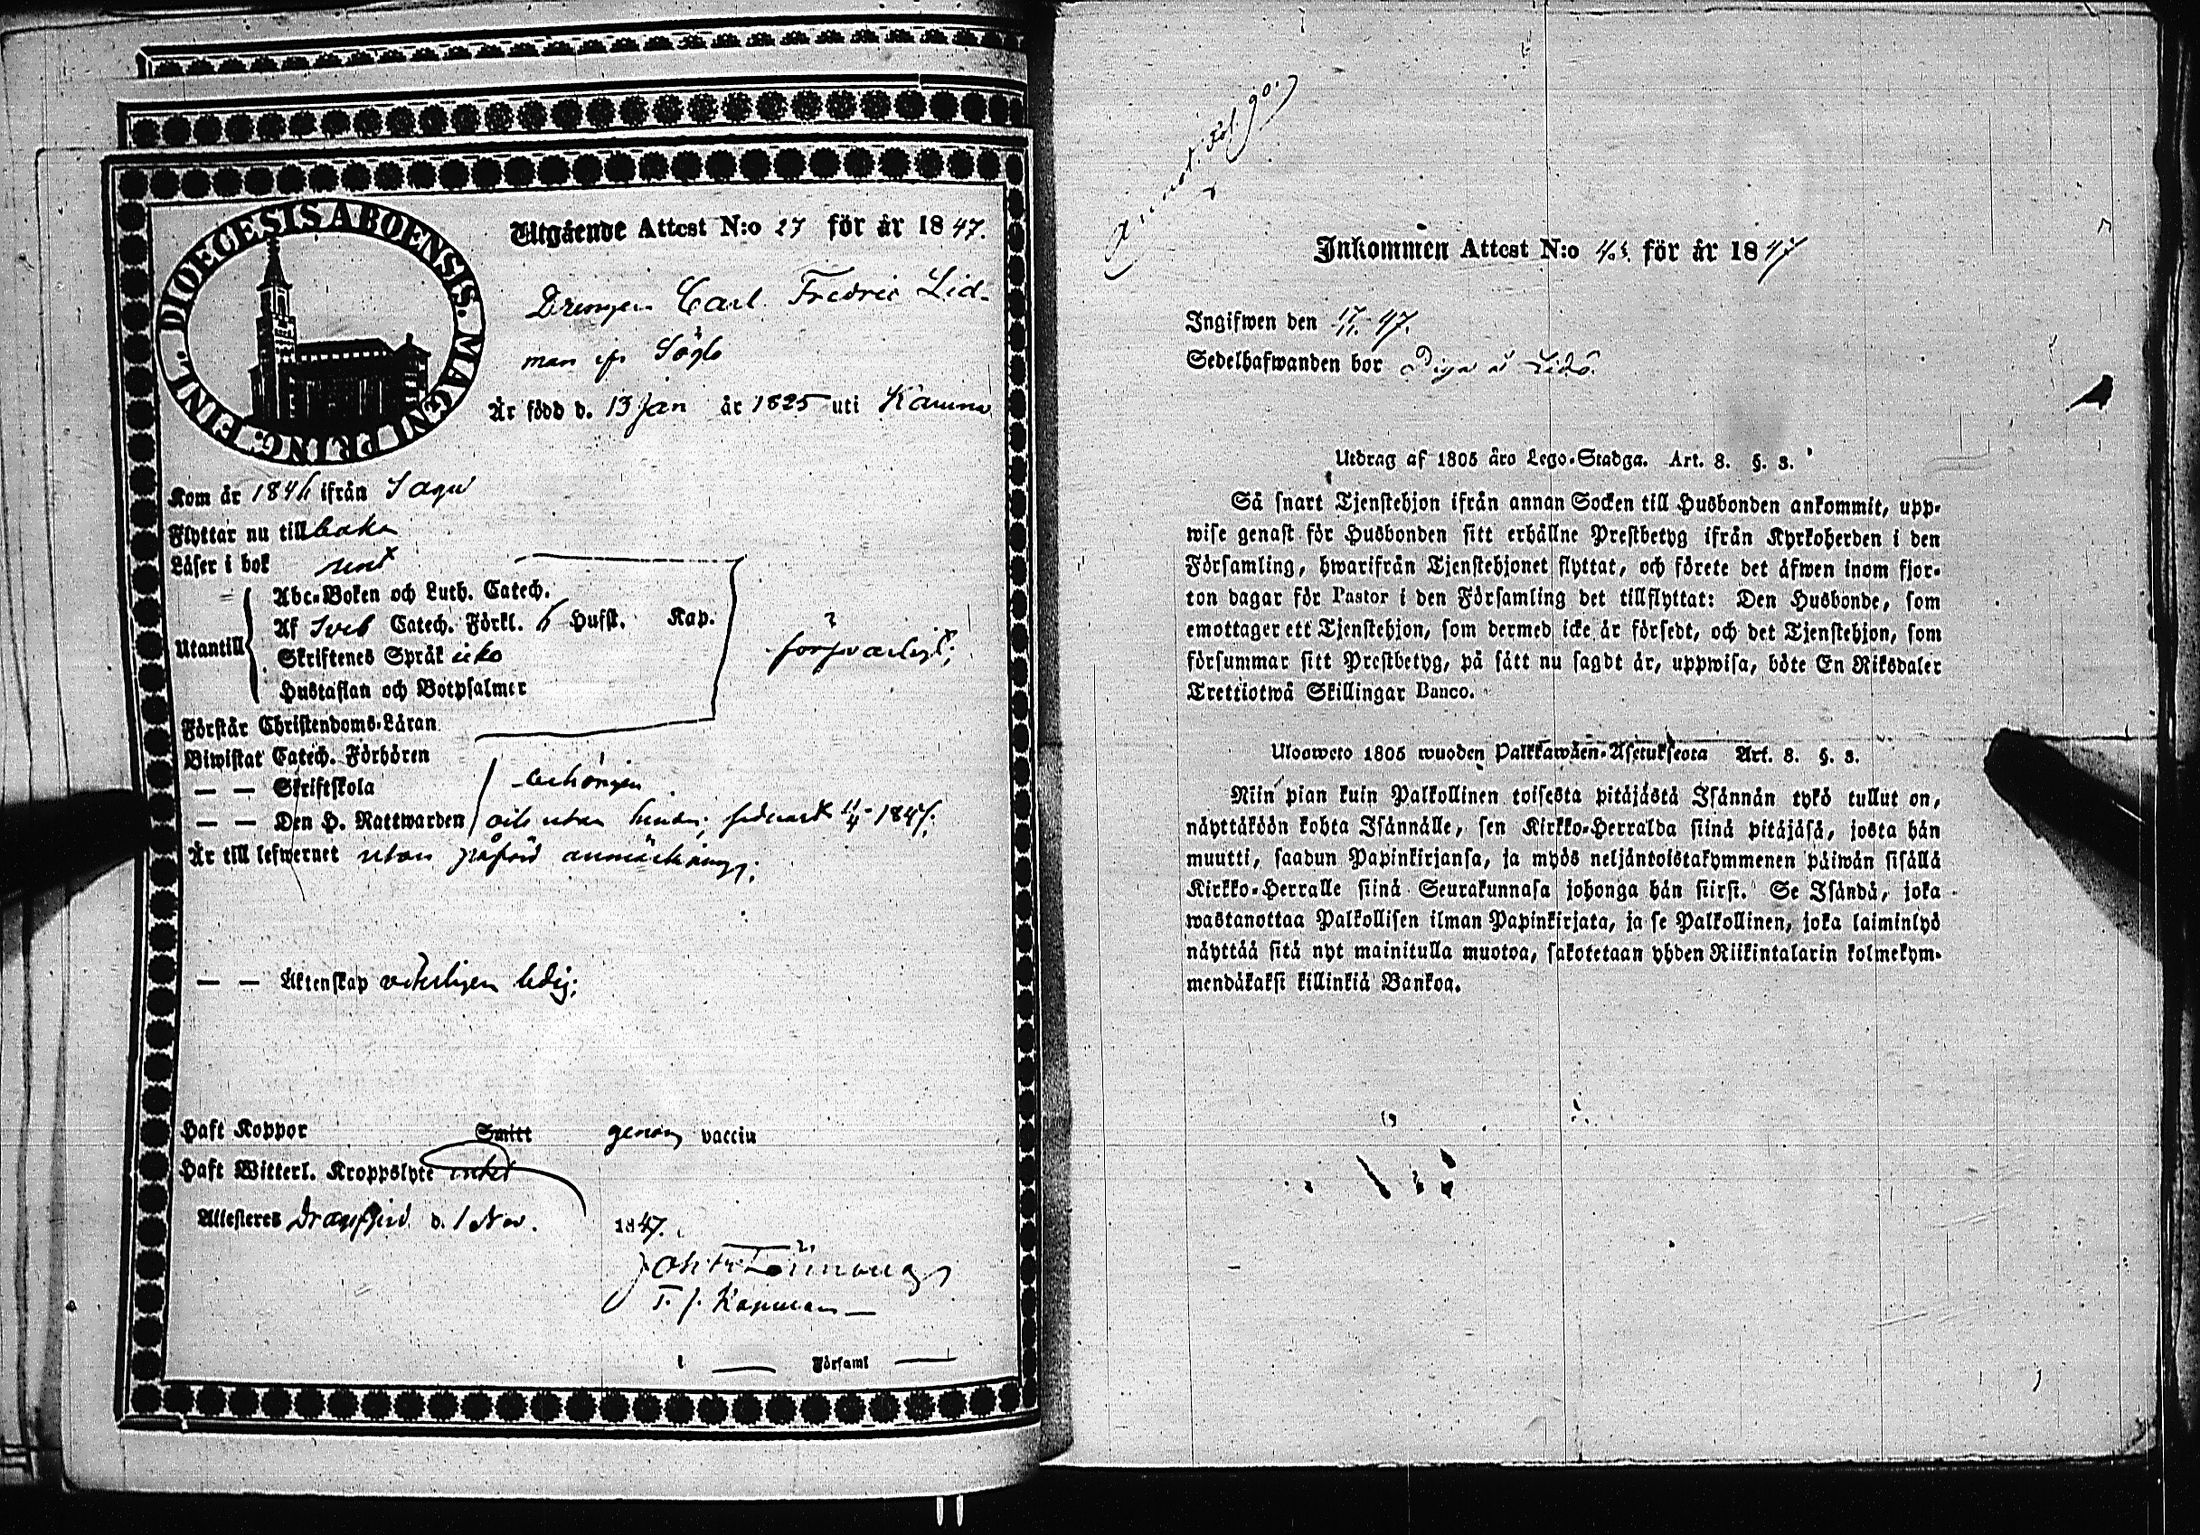 DIOECESIS ABOENSIS. MAGNI PRINC. FINL.
Utgående Attest N:o 27 för år 1847.
Drengen Carl Fredric Lid-
man ifr
Är född d. 13 Jan år 1825 uti Karuna
Kom år 184 ifrån Sagu
Flyttar nu till baka
Läser i bok rent
Abc-Boken och Luth. Catech.
Utantill Af Sveb Catech. Förkl. 6 Hufst. Kap. försvarligt;
Skriftenes Språk icke
Hustaflan och Botpsalmer
Förstår Christendoms-Läran
Biwistat Catech. Förhören
— — Skriftskola behörigen
— — Den H. Nattwarden och utan hinder; sednast 11/4 1847;
Är till lefwernet utan anmärkning;
— — Äktenskap veterligen ledig;
Haft Koppor Smitt genom vaccin
Haft Witterl. Kroppslyte intet
Attesteres Dragsfjerd d. 1 Nov. 1847.
i — Församl —
Annot. Fol. 90.
Inkommen Attest N:o för år 1847
Ingifwen den 17/11 47.
Sedelhafwanden bor
Utdrag af 1805 års Lego-Stadga. Art. 8. §. 3.
Så snart Tjenstehjon ifrån annan Socken till Husbonden ankommit, upp-
wise genast för Husbonden sitt erhållne Prestbetyg ifrån Kyrkoherden i den
Församling, hwarifrån Tjenstehjonet flyttat, och förete det äfwen inom fjor-
ton dagar för Pastor i den Församling det tillflyttat: Den Husbonde, som
emottager ett Tjenstehjon, som dermed icke är försedt, och det Tjenstehjon, som
försummar sitt Prestbetyg, på sätt nu sagdt är, uppwisa, böte En Riksdaler
Trettiotwå Skillingar Banco.
Ulosweto 1805 wuoden Palkkawäen-Asetuksesta Art. 8. §. 3.
Niin pian kuin Palkollinen toisesta pitäjästä Isännän tykö tullut on,
näyttäköön kohta Isännälle, sen Kirkko-Herralda siinä pitäjäsä, josta hän
muutti, saadun Papinkirjansa, ja myös neljäntoistakymmenen päiwän sisällä
Kirkko-Herralle siinä Seurakunnasa johonga hän siirsi. Se Isändä, joka
wastanottaa Palkollisen ilman Papinkirjata, ja se Palkollinen, joka laiminlyö
näyttää sitä nyt mainitulla muotoa, sakotetaan yhden Riikintalarin kolmekym-
mendäkaksi killinkiä Bankoa.